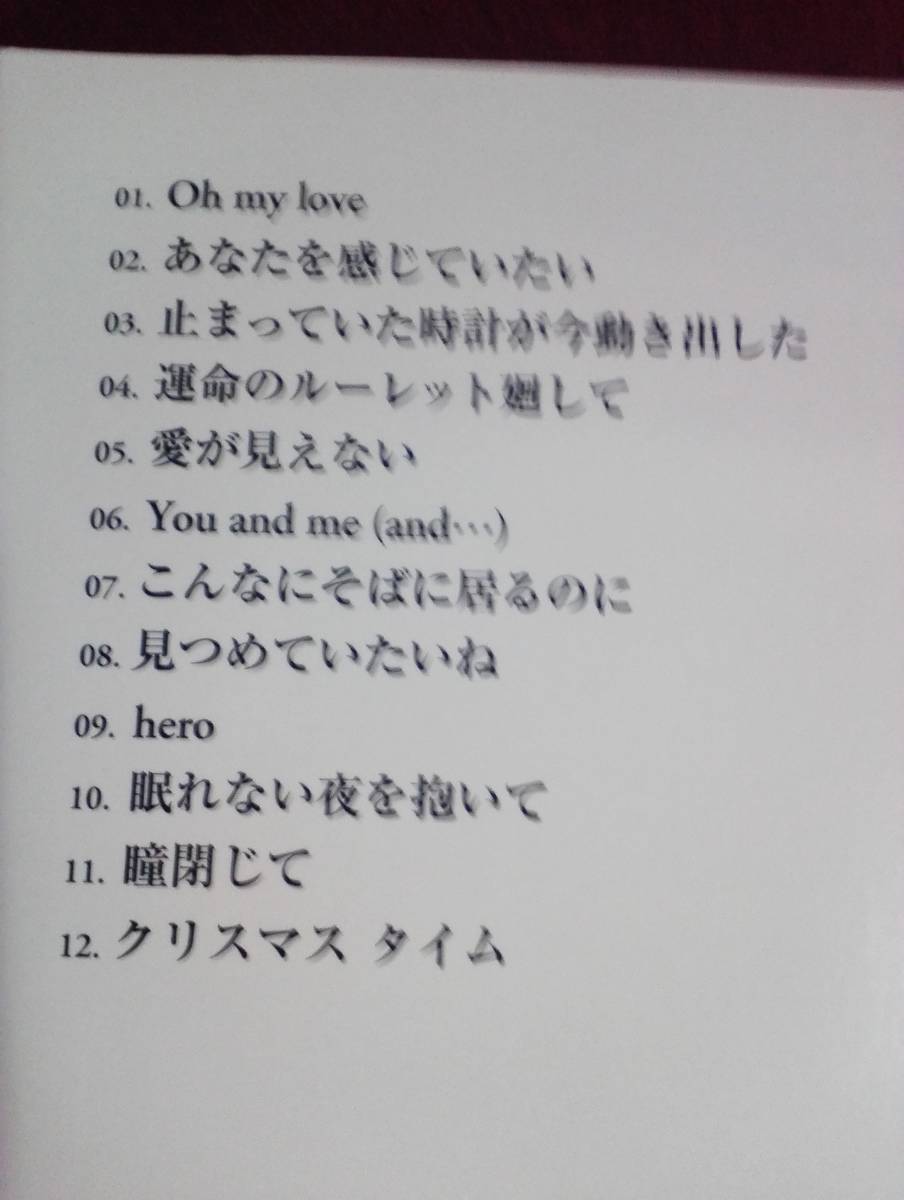 01. Oh my love
02. あなたを感じていたい
03. 止まっていた時計が今動き出した
04. 運命のルーレット廻して
05. 愛が見えない
06. You and me (and…)
07. こんなにそばに居るのに
08. 見つめていたいね
09. hero
10. 眠れない夜を抱いて
11. 瞳閉じて
12. クリスマス タイム